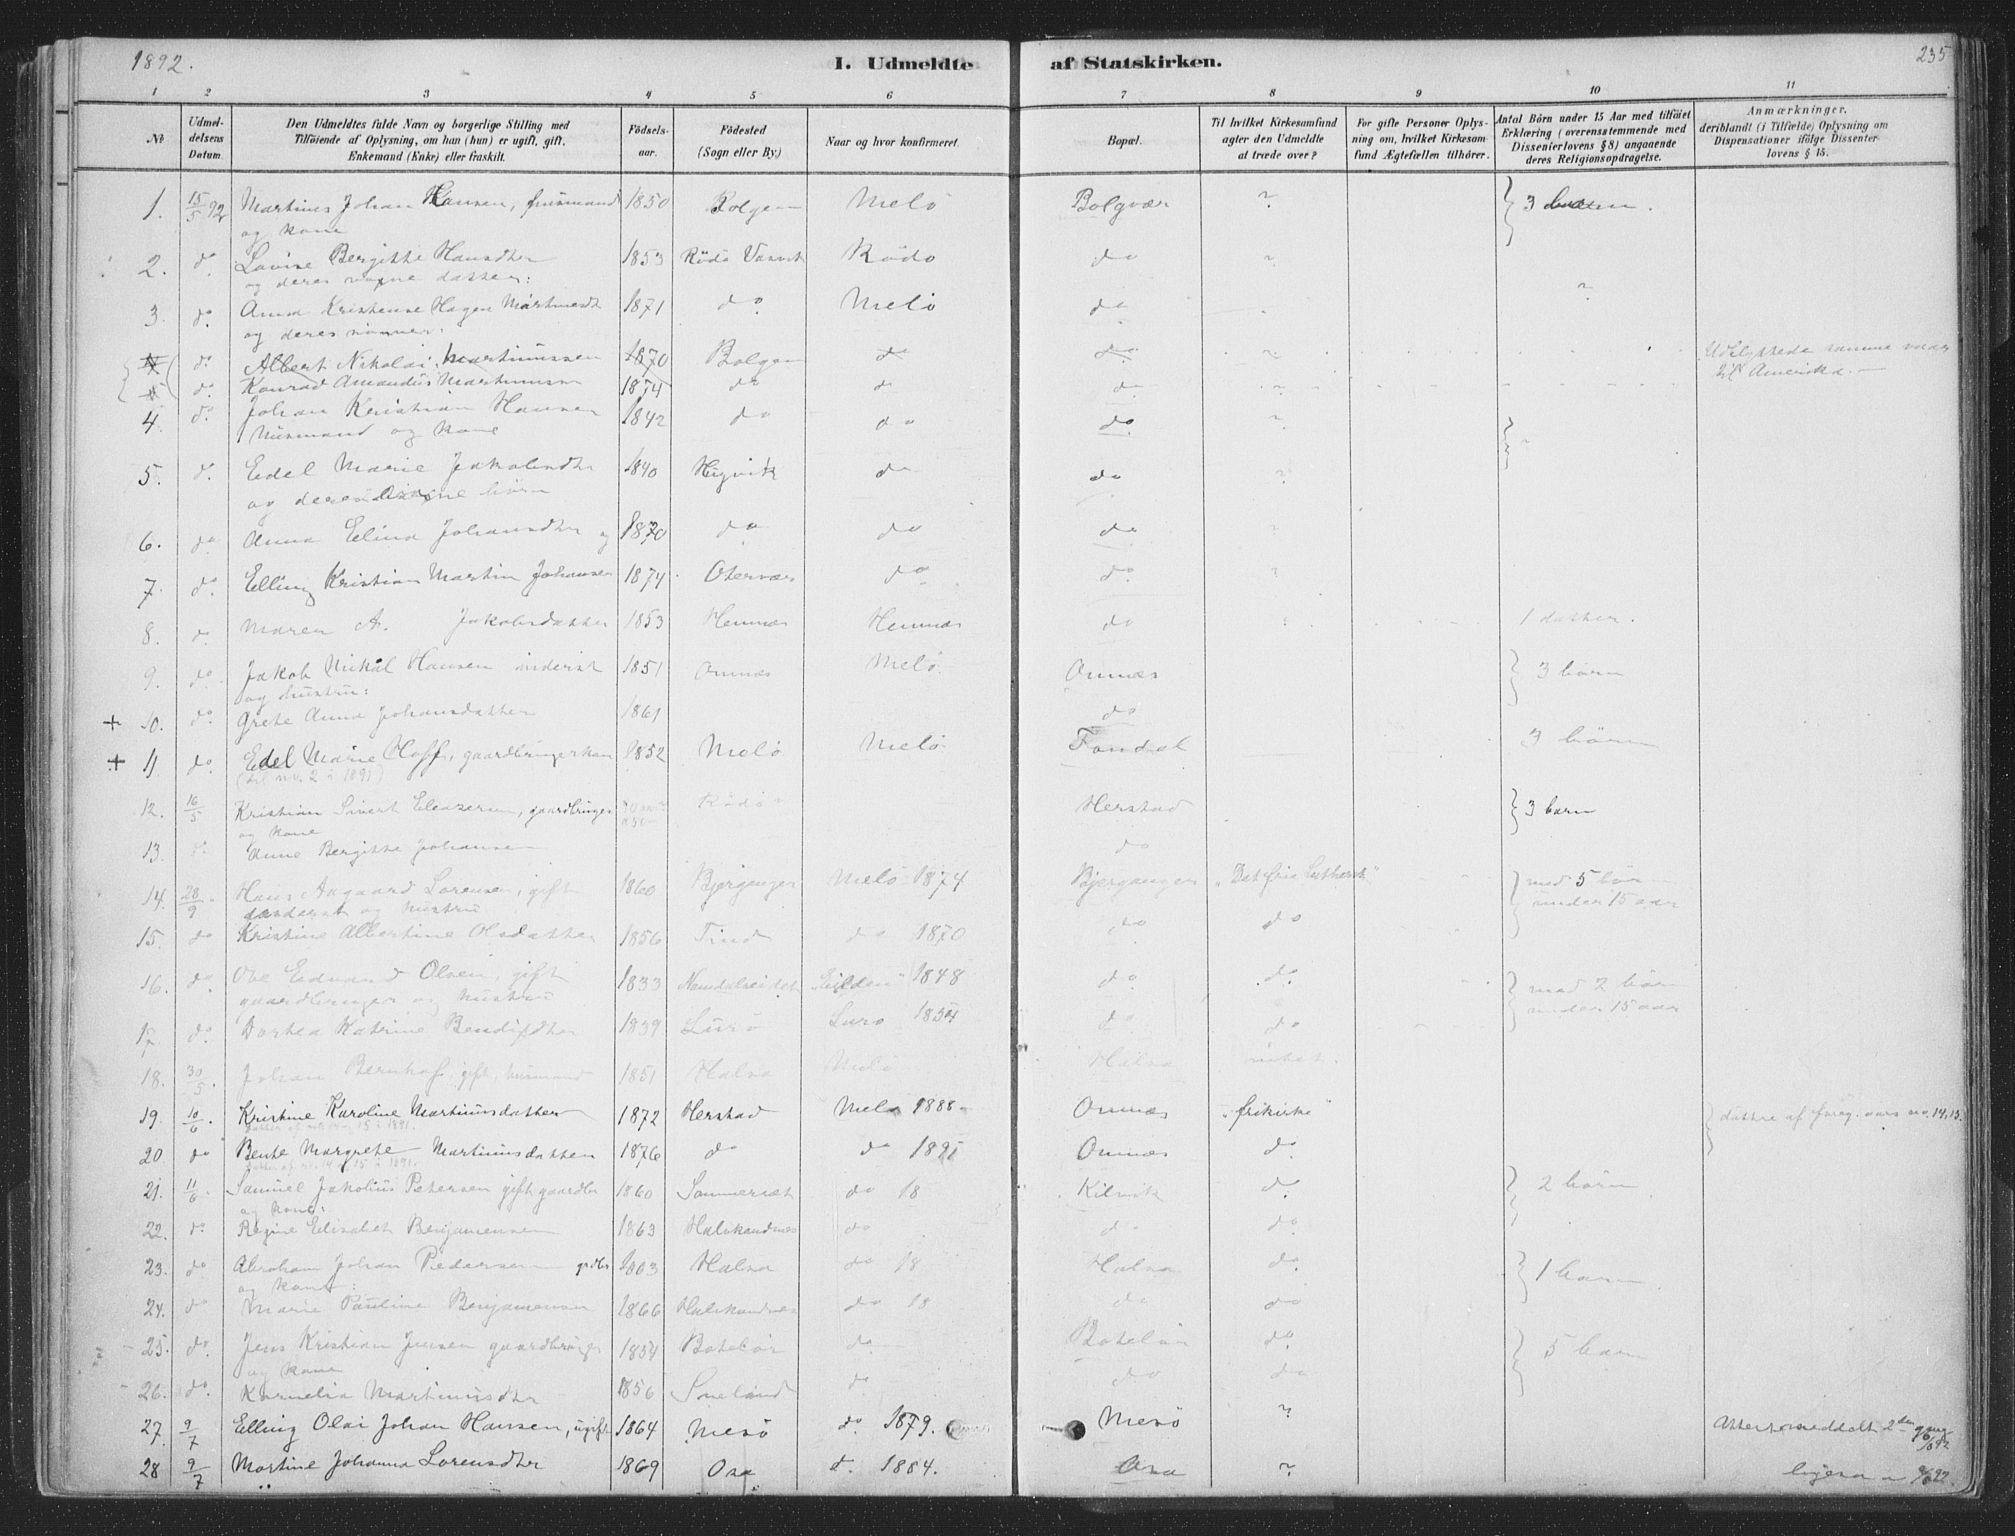 1892.
I. Udmeldte af Statskirken.
235
1 2 3 4 5 6 7 8 9 10 11
No
Udmel-
delsens
Datum.
Den Udmeldtes fulde Navn og borgerlige Stilling med
Tilføiende af Oplysning, om han (hun) er ugift, gift,
Enkemand (Enke) eller fraskilt.
Fødsels-
aar.
Fødested
(Sogn eller By.)
Naar og hvor konfirmeret.
Bopæl.
Til hvilket Kirkesamfund
agter den Udmeldte
at træde over?
For gifte Personer Oplys-
ning om, hvilket Kirkesam
fund Ægtefællen tilhører.
Antal Børn under 15 Aar med tilføiet
Erklæring (overensstemmende med
Dissenterlovens § 8) angaaende
deres Religionsopdragelse.
Anmærkninger,
deriblandt (i Tilfælde) Oplysning om
Dispensationer ifølge Dissenter
lovens § 15.
1. 15/5 92 Martinus Johan Hansen, husmand 1850 Bolgen Melö Bolgvær ? 3 børn.
og kone
2. do Lovise Bergitte Hansdtr 1853 Rödö Rödö do ?
og deres voxne datter:
3. do Anna Kristense Hagen 1871 do Melö do ?
og deres sönner:
do Albert Nikolai Martinussen 1870 Bolgen do do
do Konrad Amandus Martinussen 1874 do do do
til Amerika.
4. do Johan Kristian Hansen 1842 do do do ?
Husmand og kone
5. do Edel Marie Jakobsdtr 1840 do do ?
og deres voxne börn
6. do Anna Elina Johansdtr og 1870 do do do
7. do Elling Kristian Martin Johansen 1874 Otervær do do ?
8. do Maren A. Jakobsdatter 1853 Hemnæs Hemnæs do 1 datter.
9. do Jakob Mikal Hansen inderst 1851 Ornnæs Melö Ornnæs 3 börn
og hustru:
+ 10. do Grete Anna Johansdatter 1861 do
+ 11 do Edel Marie Hoff, gaardbrugerkone 1852 Melö Melö Fondal 3 börn
(til no. 2 i 1891)
12. 16/5 Kristian Sivert Eleazersen, gaardbruger Rödö Herstad 3 barn
og kone
13. do Anne Bergitte Johansen do
14. 28/9 Hans Aagaard Lorensen, gift 1860 Bjergenger Melö 1874 Bjerganger "Det frie Luthersk" med 5 börn
og hustru under 15 aar
15. do Kristine Albertine Olsdatter 1856 Tind do 1870 do do
16. do Ole Edvard Olsen, gift 1833 Namdalseidet 1848 do do med 2 börn
gaardbruger og hustru under 15 aar
17 do Dortea Katrine Bendiksdtr 1839 Lurö Lurö 1854 do do
18. 30/5 Johan Bernhof, gift, husmand 1851 Halsa Melö Halsa intet.
19. 10/6 Kristine Karoline Martinusdatter 1872 Herstad Melö 1888 Ornnæs "frikirke" döttre af foreg. aars no. 14, 15.
datter af no. 14 - 15 i 1891.
20 do Bente Margrete Martinusdatter 1876 do do 1891 Ornnæs do.
datter af no. 14 - 15 i 1891.
21. 11/6 Samuel Jakobus Petersen gift gaardbr 1860 Sommerset do 18 Kilvik do 2 börn
og kone:
22. do Regine Elisabet Benjaminsen 1863 Halskandnes do do do
23. do Abraham Johan Pedersen grdbr 1863 Halsa do 18 Halsa do. 1 barn
og kone:
24. do Marie Pauline Benjaminsen 1866 Halskandnes do 18 do do
25. do Jens Kristian Jensen gaardbruger 1854 Botelör do Botelör do 5 barn
og kone
26. do. Kornelia Martinusdtr 1856 Sneland do do do
27. 9/7 Elling Olai Johan Hansen, ugift 1864 Mesö do 1879. Mesö ? 2den gang
28 9/7 Martine Johanna Lorensdtr 1869 Osa d. 1884. Osa ? ligesa